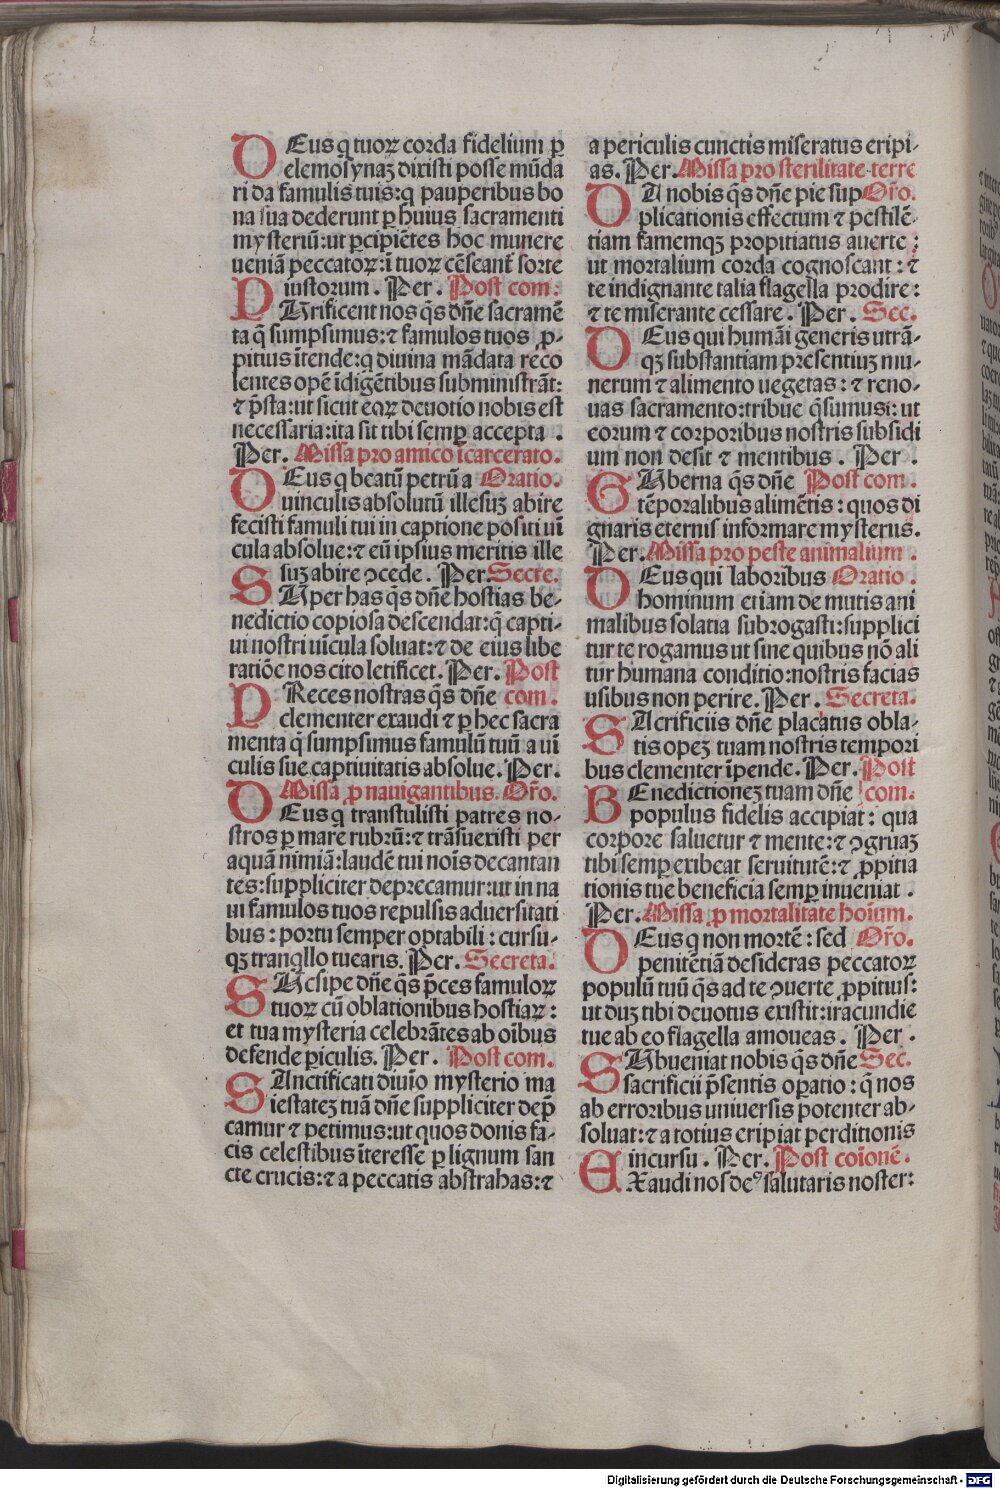 DEus q̄ tuoꝝ corda fidelium ꝑ
elemosynaꝫ dixisti posse mūda
ri da famulis tuis: q̄ pauperibus bo
na sua dederunt ꝑ huius sacramenti
mysteriū: ut ꝑcipiētes hoc munere
ueniā peccatoꝝ: ī tuoꝝ cēseant᷑ sorte
iustorum . Per . Post com:
PUrificent nos q̄s dn̄e sacramē
ta q̄ sumpsimus: ⁊ famulos tuos ꝓ-
pitius ītende: q̄ diuina mādata reco
lentes opē īdigētibus subministrāt:
⁊ p̄sta: ut sicut eoꝝ deuotio nobis est
necessaria: ita sit tibi semꝑ accepta .
Per. Missa pro amico īcarcerato.
DEus q̄ beatū petrū a Oratio.
uinculis absolutū illesuꝫ abire
fecisti famuli tui in captione positi uī
cula absolue: ⁊ eū ipsius meritis ille
suꝫ abire ↄcede . Per. Secre.
SUper has q̄s dn̄e hostias be-
nedictio copiosa descendat: q̄ capti-
ui nostri uīcula soluat: ⁊ de eius libe
ratiōe nos cito letificet. Per. Post
PReces nostras q̄s dn̄e com.
clementer exaudi ⁊ ꝑ hec sacra
menta q̄ sumpsimus famulū tuū a uī
culis sue captiuitatis absolue. Per.
Missa ꝓ nauigantibus. Or̄o.
DEus q̄ transtulisti patres no-
stros ꝑ mare rubrū: ⁊ trāsuexisti per
aquā nimiā: laudē tui noīs decantan
tes: suppliciter deprecamur: ut in na
ui famulos tuos repulsis aduersitati
bus: portu semper optabili: cursu-
qꝫ tranqllo tuearis. Per. Secreta.
SUscipe dn̄e q̄s p̄ces famuloꝝ
tuoꝝ cū oblationibus hostiaꝝ :
et tua mysteria celebrātes ab oībus
defende ꝑiculis. Per . Post com.
SAnctificati diuīo mysterio ma
iestateꝫ tuā dn̄e suppliciter dep̄
camur ⁊ petimus: ut quos donis fa-
cis celestibus īteresse ꝑ lignum san
cte crucis: ⁊ a peccatis abstrahas: ⁊
a periculis cunctis miseratus eripi-
as. Per. Missa pro sterilitate terre
DA nobis q̄s dn̄e pie sup Or̄o.
plicationis effectum ⁊ pestilē-
tiam famemqꝫ propitiatus auerte :
ut mortalium corda cognoscant : ⁊
te indignante talia flagella prodire :
⁊ te miserante cessare . Per . Sec.
DEus qui humāi generis utrā-
qꝫ substantiam presentiuꝫ mu-
nerum ⁊ alimento uegetas : ⁊ reno-
uas sacramento: tribue q̄sumus: ut
eorum ⁊ corporibus nostris subsidi
um non desit ⁊ mentibus . Per .
GUberna q̄s dn̄e Post com .
tēporalibus alimētis : quos di
gnaris eternis informare mysteriis.
Per. Missa pro peste animalium .
DEus qui laboribus Oratio .
hominum etiam de mutis ani
malibus solatia subrogasti: supplici
tur te rogamus ut sine quibus nō ali
tur humana conditio: nostris facias
usibus non perire. Per. Secreta.
SAcrificiis dn̄e placatus obla-
tis opeꝫ tuam nostris tempori
bus clementer īpende. Per. Post
BEnedictioneꝫ tuam dn̄e com.
populus fidelis accipiat : qua
corpore saluetur ⁊ mente: ⁊ ↄgruaꝫ
tibi semꝑ exibeat seruitutē: ⁊ ꝓpitia
tionis tue beneficia semꝑ inueniat .
Per. Missa ꝓ mortalitate hoīum.
DEus q̄ non mortē : sed Or̄o.
penitētiā desideras peccatoꝝ
populū tuū q̄s ad te ↄuerte ꝓpitius:
ut duꝫ tibi deuotus existit: iracundie
tue ab eo flagella amoueas . Per .
SUbueniat nobis q̄s dn̄e Sec.
sacrificii p̄sentis oꝑatio : q̄ nos
ab erroribus uniuersis potenter ab-
soluat: ⁊ a totius eripiat perditionis
incursu . Per. Post coīonē .
EXaudi nos deꝰ salutaris noster:
Digitalisierung gefördert durch die Deutsche Forschungsgemeinschaft - DFG